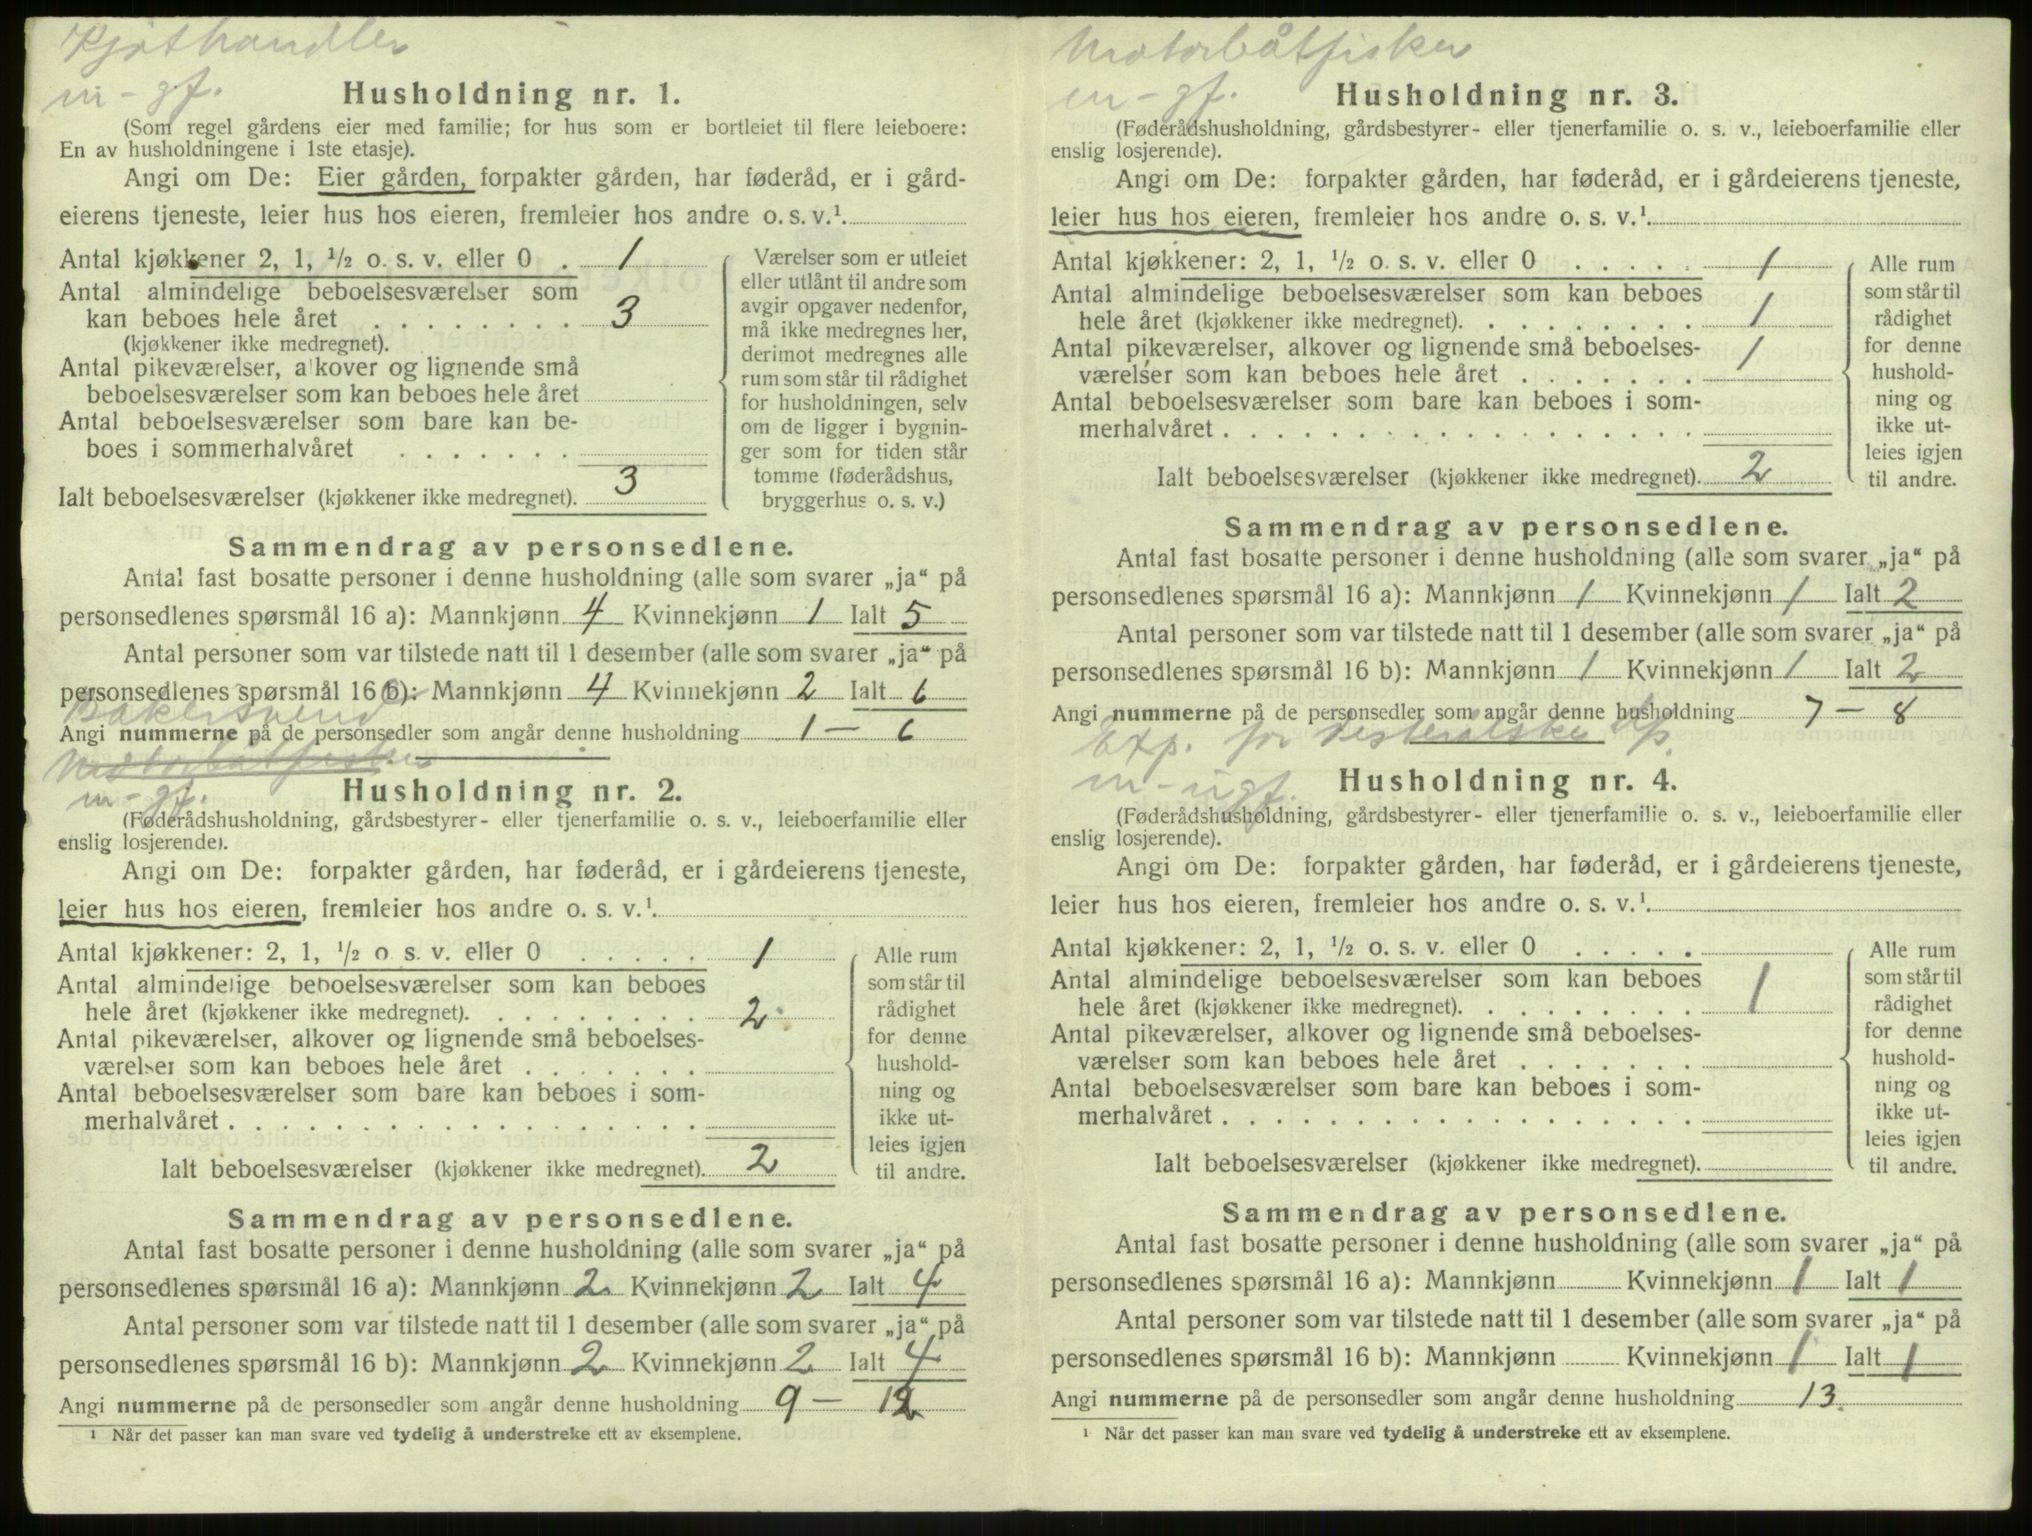 Kjøthandler
m - gf.
Husholdning nr. 1.
(Som regel gårdens eier med familie; for hus som er bortleiet til flere leieboere:
En av husholdningene i 1ste etasje).
Angi om De: Eier gården, forpakter gården, har føderåd, er i gård-
eierens tjeneste, leier hus hos eieren, fremleier hos andre o. s. v.¹
Antal kjøkkener 2, 1, ½ o. s. v. eller 0 . 1
Antal almindelige beboelsesværelser som
kan beboes hele året . . . . . . . . 3
(kjøkkener ikke medregnet).
Antal pikeværelser, alkover og lignende små
beboelsesværelser som kan beboes hele året
Antal beboelsesværelser som bare kan be-
boes i sommerhalvåret . . . . . . .
Ialt beboelsesværelser (kjøkkener ikke medregnet). 3
Værelser som er utleiet
eller utlånt til andre som
avgir opgaver nedenfor,
må ikke medregnes her,
derimot medregnes alle
rum som står til rådighet
for husholdningen, selv
om de ligger i bygnin-
ger som for tiden står
tomme (føderådshus,
bryggerhus o. s. v.)
Sammendrag av personsedlene.
Antal fast bosatte personer i denne husholdning (alle som svarer „ja“ på
personsedlenes spørsmål 16 a): Mannkjønn 4 Kvinnekjønn 1 Ialt 5
Antal personer som var tilstede natt til 1 desember (alle som svarer „ja“ på
personsedlenes spørsmål 16 b): Mannkjønn 4 Kvinnekjønn 2 Ialt 6
Bakersvend
Angi nummerne på de personsedler som angår denne husholdning 1 — 6
Motorbåtfisker
m - gf.
Husholdning nr. 2.
(Føderådshusholdning, gårdsbestyrer- eller tjenerfamilie o. s. v., leieboerfamilie eller
enslig losjerende).
Angi om De: forpakter gården, har føderåd, er i gårdeierens tjeneste,
leier hus hos eieren, fremleier hos andre o. s. v.¹
Antal kjøkkener: 2, 1, ½ o. s. v. eller 0 . . . . . 1
Antal almindelige beboelsesværelser som kan beboes
hele året (kjøkkener ikke medregnet). . . . . . . . . 2
Antal pikeværelser, alkover og lignende små beboelses-
værelser som kan beboes hele året . . . . . . .
Antal beboelsesværelser som bare kan beboes i som-
merhalvåret . . . . . . . . . . . . . . . . . .
Ialt beboelsesværelser (kjøkkener ikke medregnet). 2
Alle rum
som står til
rådighet
for denne
hushold-
ning og
ikke ut-
leies igjen
til andre.
Sammendrag av personsedlene.
Antal fast bosatte personer i denne husholdning (alle som svarer „ja“ på
personsedlenes spørsmål 16 a): Mannkjønn 2 Kvinnekjønn 2 Ialt 4
Antal personer som var tilstede natt til 1 desember (alle som svarer „ja“ på
personsedlenes spørsmål 16 b): Mannkjønn 2 Kvinnekjønn 2 Ialt 4
Angi nummerne på de personsedler som angår denne husholdning 9 — 12
¹ Når det passer kan man svare ved tydelig å understreke ett av eksemplene.
Motorbåtfisker
m - gf.
Husholdning nr. 3.
(Føderådshusholdning, gårdsbestyrer- eller tjenerfamilie o. s. v., leieboerfamilie eller
enslig losjerende).
Angi om De: forpakter gården, har føderåd, er i gårdeierens tjeneste,
leier hus hos eieren, fremleier hos andre o. s. v.¹
Antal kjøkkener: 2, 1, ½ o. s. v. eller 0 . . . . . 1
Antal almindelige beboelsesværelser som kan beboes
hele året (kjøkkener ikke medregnet). . . . . . . . . 1
Antal pikeværelser, alkover og lignende små beboelses-
værelser som kan beboes hele året . . . . . . . 1
Antal beboelsesværelser som bare kan beboes i som-
merhalvåret . . . . . . . . . . . . . . . . . .
Ialt beboelsesværelser (kjøkkener ikke medregnet). 2
Alle rum
som står til
rådighet
for denne
hushold-
ning og
ikke ut-
leies igjen
til andre.
Sammendrag av personsedlene.
Antal fast bosatte personer i denne husholdning (alle som svarer „ja“ på
personsedlenes spørsmål 16 a): Mannkjønn 1 Kvinnekjønn 1 Ialt 2
Antal personer som var tilstede natt til 1 desember (alle som svarer „ja“ på
personsedlenes spørsmål 16 b): Mannkjønn 1 Kvinnekjønn 1 Ialt 2
Angi nummerne på de personsedler som angår denne husholdning 7 — 8
Exp. for Vesterålske dp.
m - ugf.
Husholdning nr. 4.
(Føderådshusholdning, gårdsbestyrer- eller tjenerfamilie o. s. v., leieboerfamilie eller
enslig losjerende).
Angi om De: forpakter gården, har føderåd, er i gårdeierens tjeneste,
leier hus hos eieren, fremleier hos andre o. s. v.¹
Antal kjøkkener: 2, 1, ½ o. s. v. eller 0 . . . . .
Antal almindelige beboelsesværelser som kan beboes
hele året (kjøkkener ikke medregnet). . . . . . . . . 1
Antal pikeværelser, alkover og lignende små beboelses-
værelser som kan beboes hele året . . . . . . .
Antal beboelsesværelser som bare kan beboes i som-
merhalvåret . . . . . . . . . . . . . . . . . .
Ialt beboelsesværelser (kjøkkener ikke medregnet).
Alle rum
som står til
rådighet
for denne
hushold-
ning og
ikke ut-
leies igjen
til andre.
Sammendrag av personsedlene.
Antal fast bosatte personer i denne husholdning (alle som svarer „ja“ på
personsedlenes spørsmål 16 a): Mannkjønn Kvinnekjønn 1 Ialt 1
Antal personer som var tilstede natt til 1 desember (alle som svarer „ja“ på
personsedlenes spørsmål 16 b): Mannkjønn Kvinnekjønn 1 Ialt 1
Angi nummerne på de personsedler som angår denne husholdning 13
¹ Når det passer kan man svare ved tydelig å understreke ett av eksemplene.